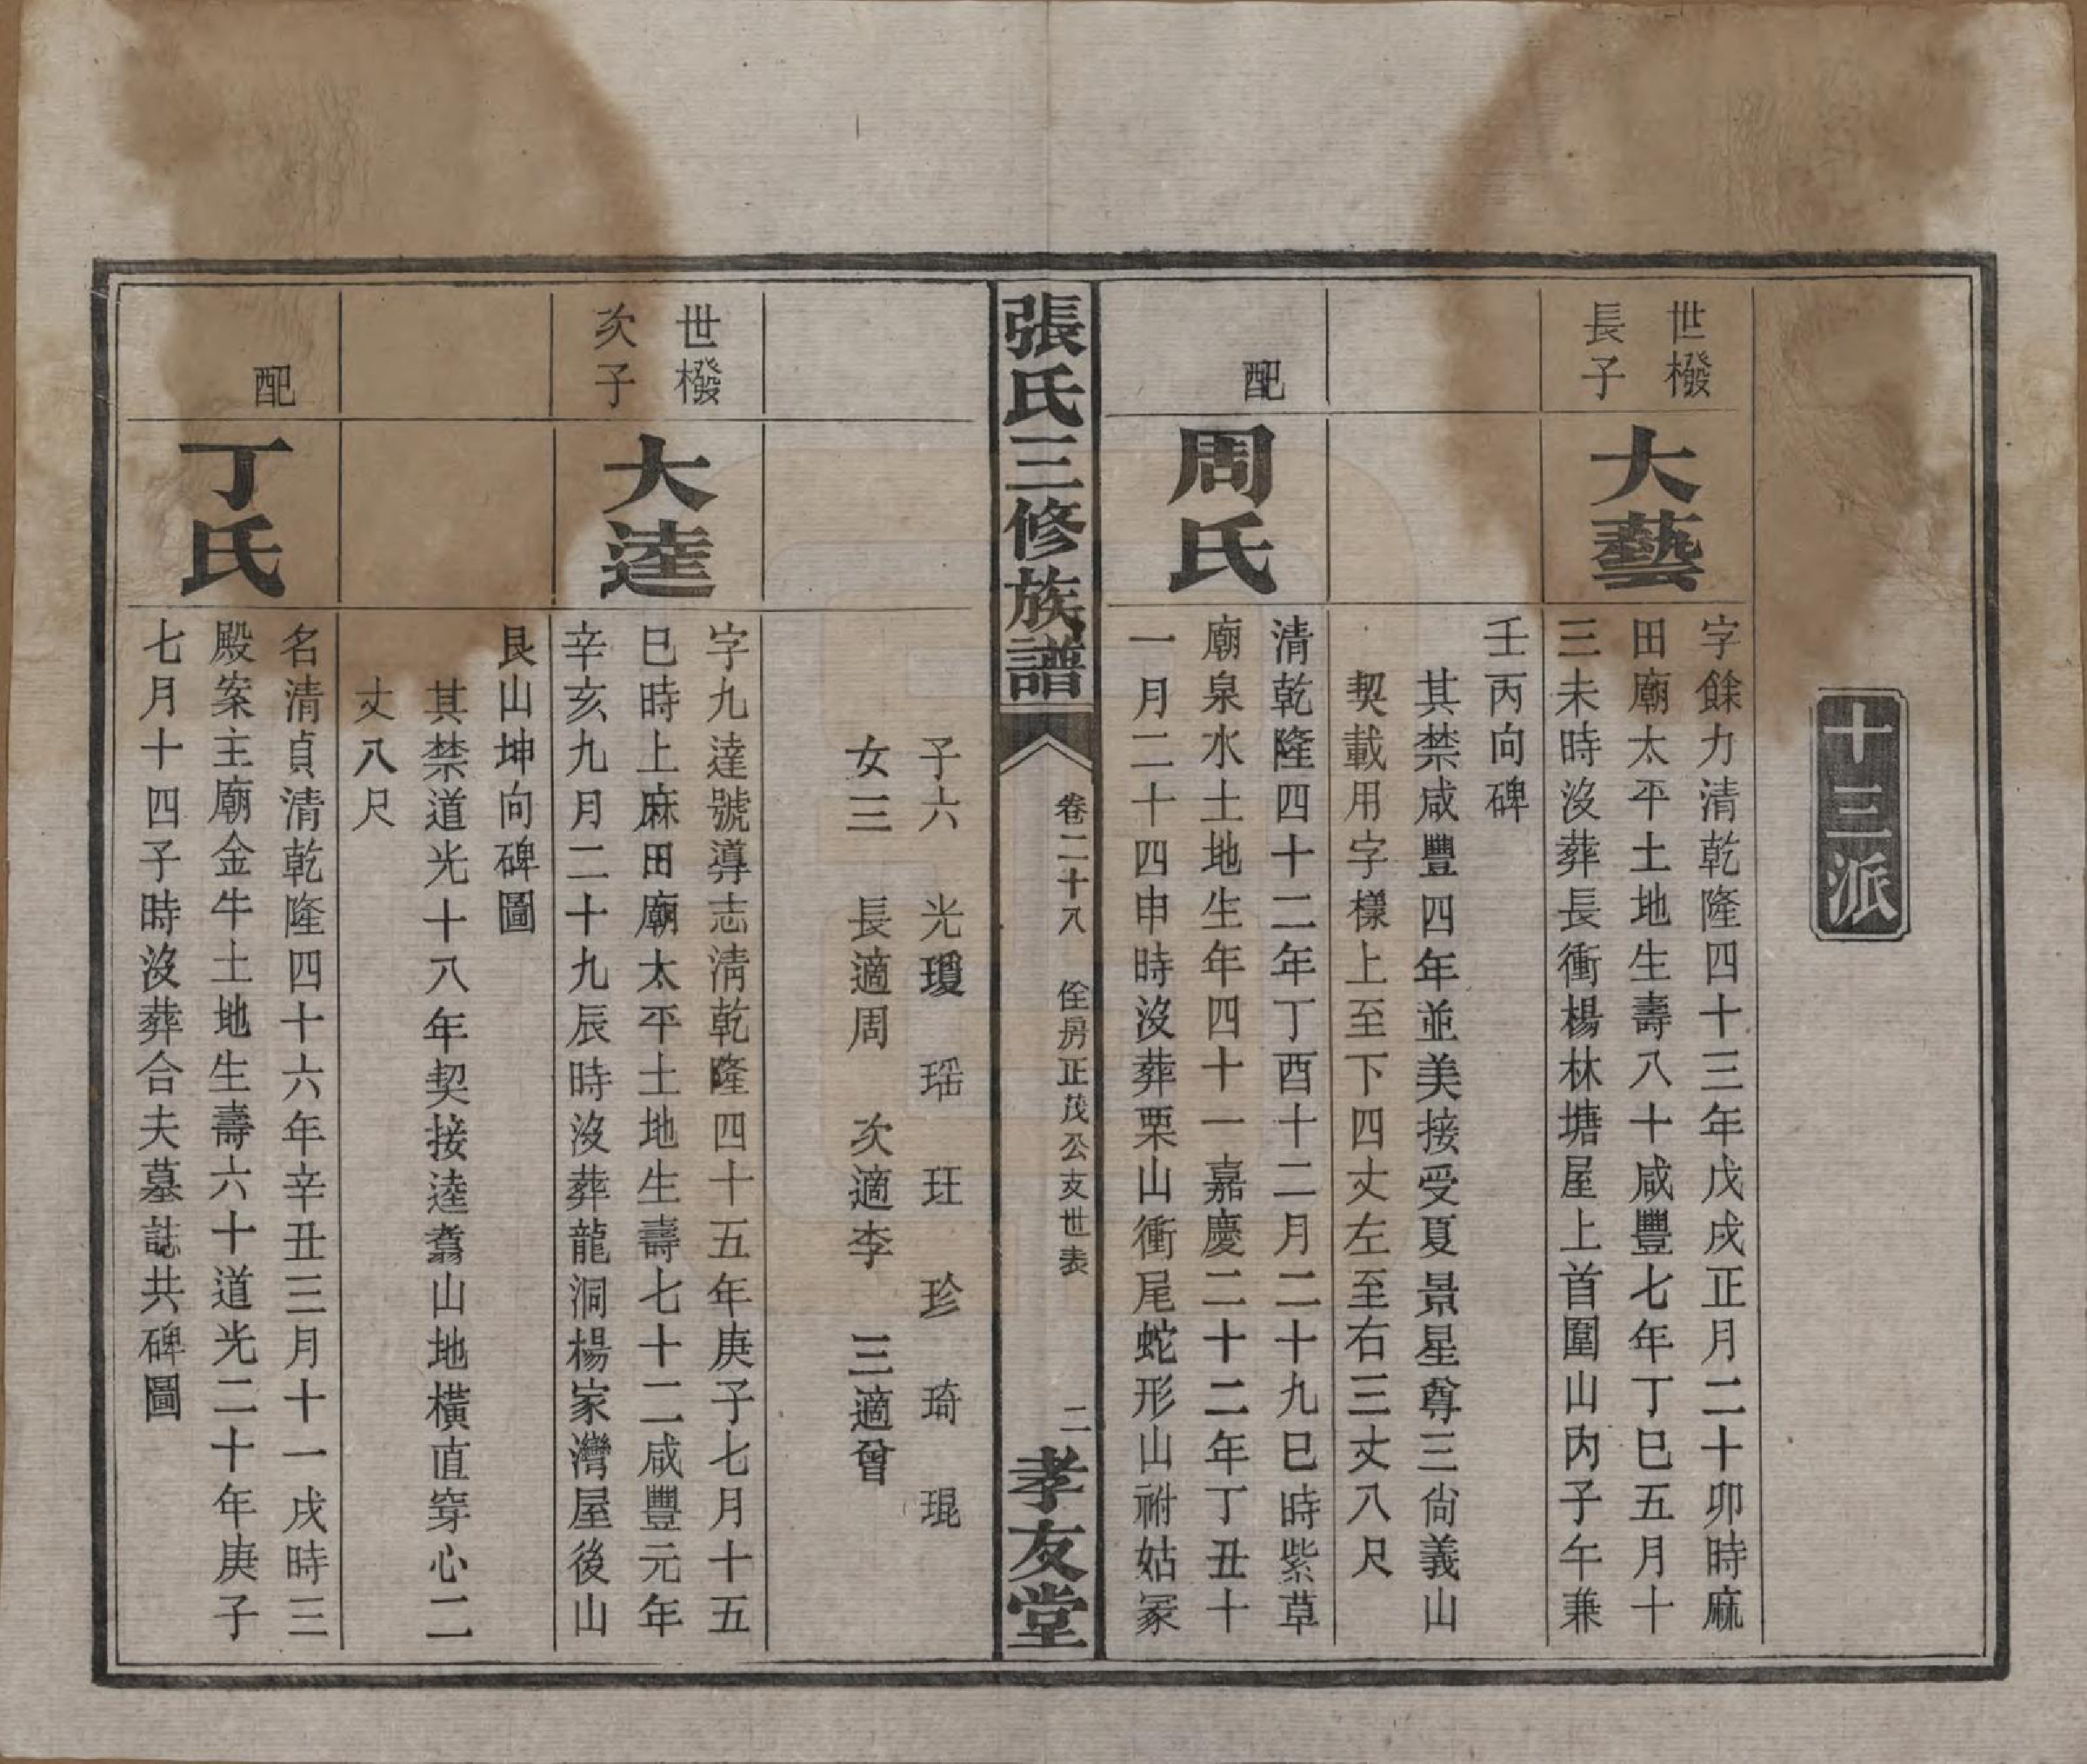 十三派
世橃
長子
大藝
字餘力清乾隆四十三年戊戌正月二十卯時麻
田廟太平土地生壽八十咸豐七年丁巳五月十
三未時沒葬長衝楊林塘屋上首圍山內子午兼
壬丙向碑
其禁咸豐四年並美接受夏景星尊三尙義山
契載用字樣上至下四丈左至右三丈八尺
配
周氏
清乾隆四十二年丁酉十二月二十九巳時紫草
廟泉水土地生年四十一嘉慶二十二年丁丑十
一月二十四申時沒葬栗山衝尾蛇形山祔姑冢
張氏三修族譜
卷二十八
佺房正茂公支世表
二
孝友堂
子六 光瓊 瑶 玨 珍 琦 琨
女三 長適周 次適李 三適曾
世橃
次子
大逵
字九達號導志清乾隆四十五年庚子七月十五
巳時上麻田廟太平土地生壽七十二咸豐元年
辛亥九月二十九辰時沒葬龍洞楊家灣屋後山
艮山坤向碑圖
其禁道光十八年契接逵翥山地橫直穿心二
丈八尺
配
丁氏
名清貞清乾隆四十六年辛丑三月十一戌時三
殿案主廟金牛土地生壽六十道光二十年庚子
七月十四子時沒葬合夫墓誌共碑圖